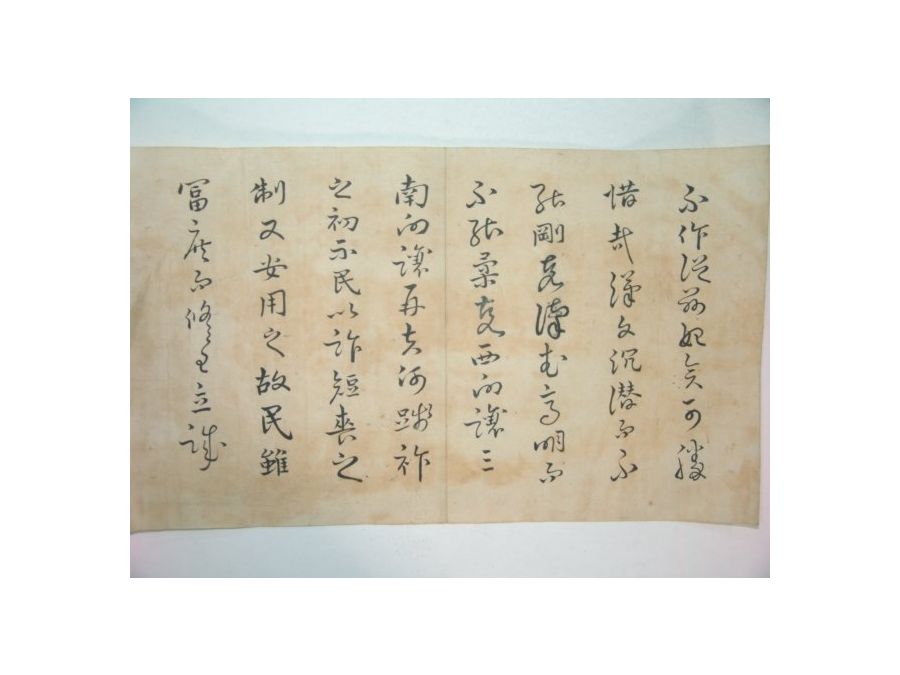 不作從茲始矣可勝
惜哉漢文沉潜而不
能剛克漢武高明而
不能柔克西向讓三
南向讓再夫何踐祚
之初示民以詐短喪之
制又安用之故民雖
富庶而修己立誠